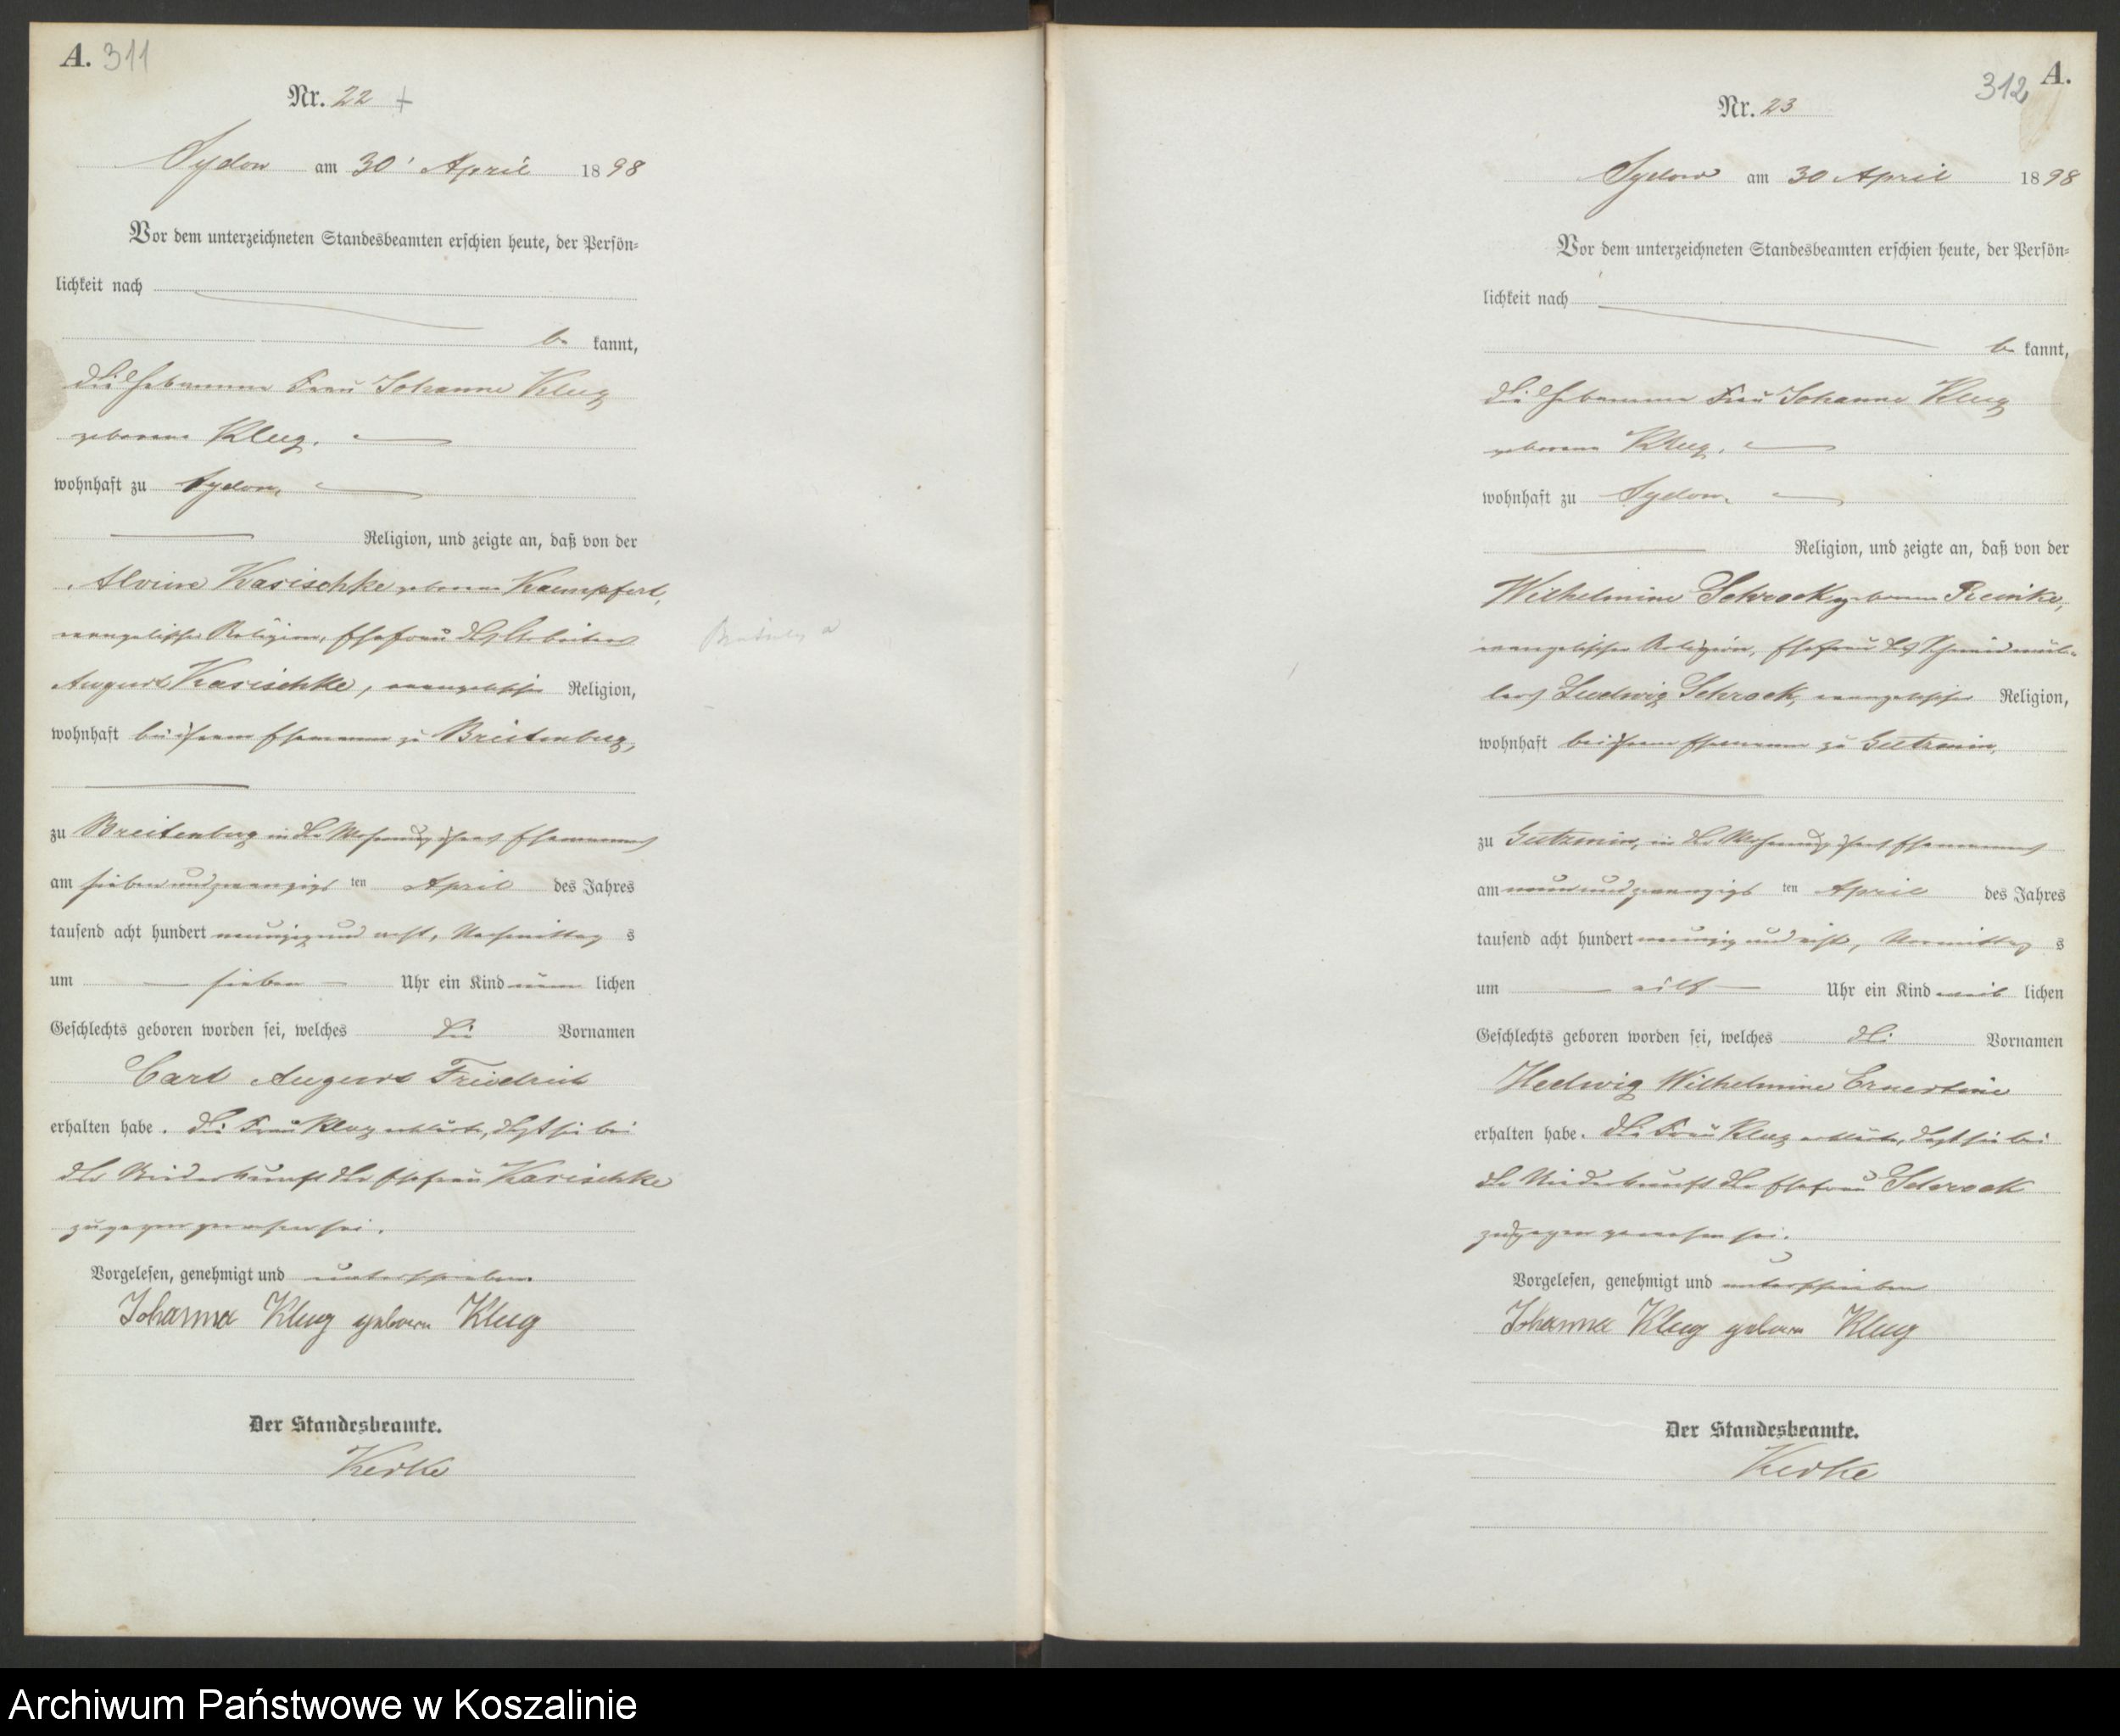 A. 311
Nr. 22 +
Sydow am 30' April 1898
Vor dem unterzeichneten Standesbeamten erschien heute, der Persön-
lichkeit nach
be kannt,
die Hebamme Frau Johanne Klug
geborene Klug.
wohnhaft zu Sydow,
Religion, und zeigte an, daß von der
Alvine Kasischke geborene Kaempfert,
evangelischer Religion, Ehefrau des Arbeiters
August Kasischke, evangelischer Religion,
wohnhaft bei ihrem Ehemanne zu Breitenberg,
zu Breitenberg in der Wohnung ihres Ehemannes
am sieben und zwanzigs ten April des Jahres
tausend acht hundert neunzig und acht, Nachmittag s
um sieben Uhr ein Kind männ lichen
Geschlechts geboren worden sei, welches die Vornamen
Carl August Friedrich
erhalten habe. Die Frau Klug erklärte, daß sie bei
der Niederkunft der Ehefrau Kasischke
zugegen gewesen sei.
Vorgelesen, genehmigt und unterschrieben
Johanna Klug geboren Klug
Der Standesbeamte.
Kerke
312 A.
Nr. 23
Sydow am 30 April 1898
Vor dem unterzeichneten Standesbeamten erschien heute, der Persön-
lichkeit nach
be kannt,
die Hebamme Frau Johanne Klug
geborene Klug.
wohnhaft zu Sydow.
Religion, und zeigte an, daß von der
Wilhelmine Schrock geborenen Reinke,
evangelischer Religion, Ehefrau des Schneidemül-
lers Ludwig Schrock, evangelischer Religion,
wohnhaft bei ihrem Ehemanne zu Gutzmin,
zu Gutzmin, in der Wohnung ihres Ehemannes
am neun und zwanzigs ten April des Jahres
tausend acht hundert neunzig und acht, Vormittag s
um elf Uhr ein Kind weib lichen
Geschlechts geboren worden sei, welches die Vornamen
Hedwig Wilhelmine Ernestine
erhalten habe. Die Frau Klug erklärte, daß sie bei
der Niederkunft der Ehefrau Schrock
zugegen gewesen sei.
Vorgelesen, genehmigt und unterschrieben
Johanna Klug geboren Klug
Der Standesbeamte.
Kerke
Archiwum Państwowe w Koszalinie